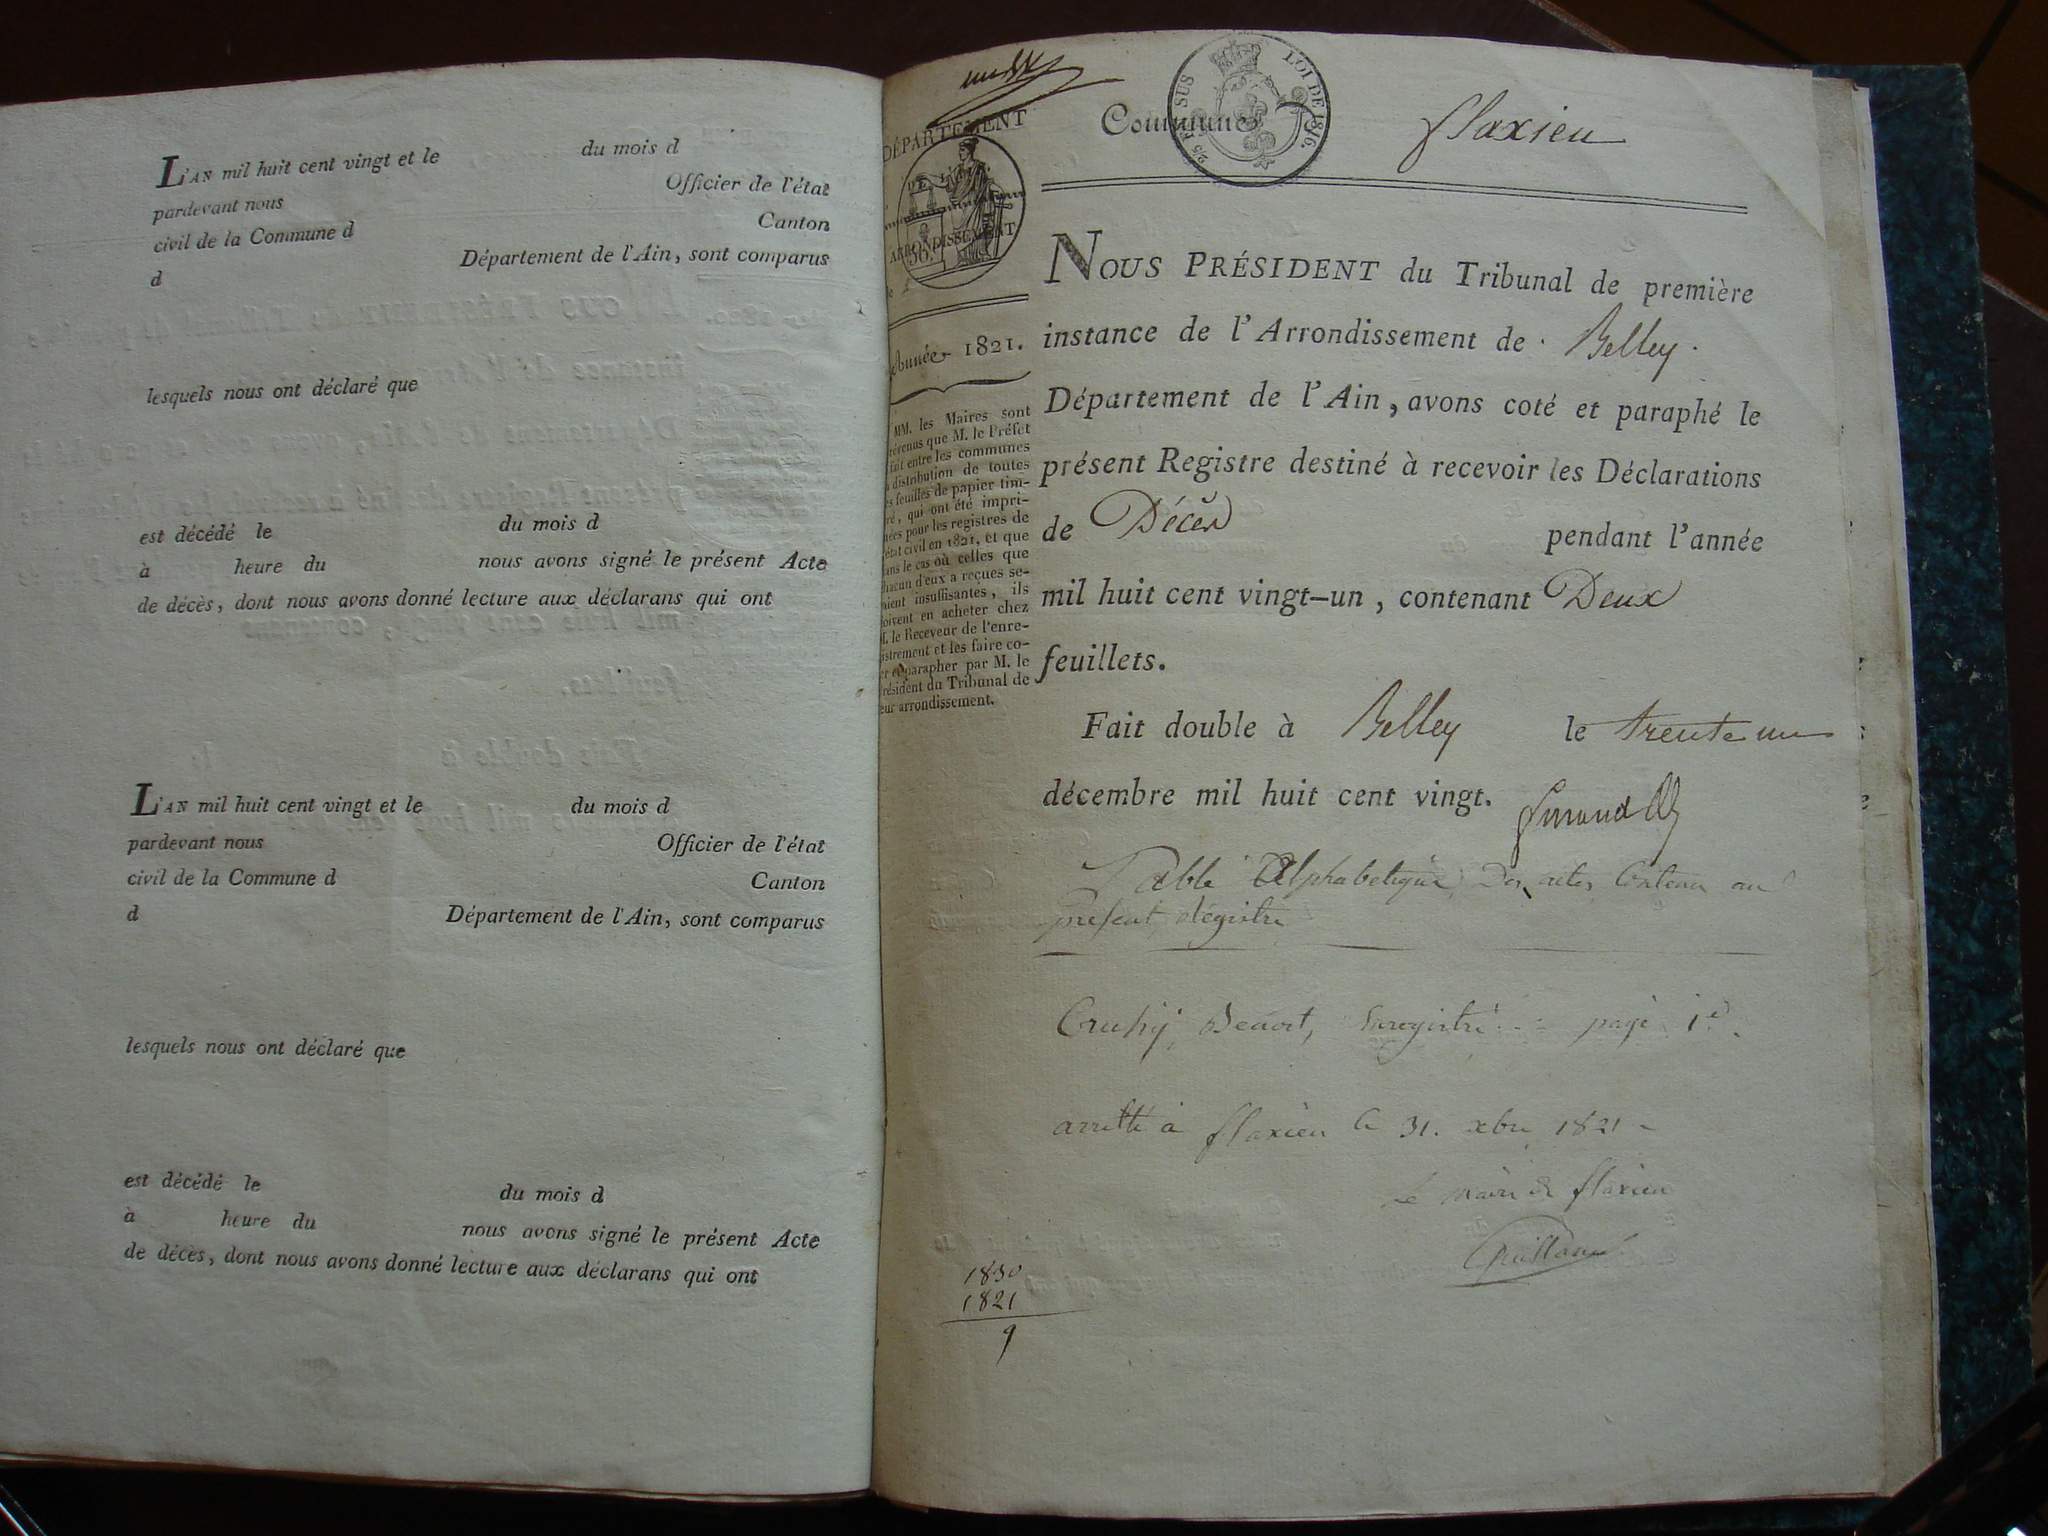 L'AN mil huit cent vingt et le du mois d
pardevant nous Officier de l'état
civil de la Commune d Canton
d Département de l'Ain, sont comparus
lesquels nous ont déclaré que
est décédé le du mois d
à heure du nous avons signé le présent Acte
de décès, dont nous avons donné lecture aux déclarans qui ont
L'AN mil huit cent vingt et le du mois d
pardevant nous Officier de l'état
civil de la Commune d Canton
d Département de l'Ain, sont comparus
lesquels nous ont déclaré que
est décédé le du mois d
à heure du nous avons signé le présent Acte
de décès, dont nous avons donné lecture aux déclarans qui ont
DÉPARTEMENT
DE L'AIN.
ARRONDISSEMENT
Année 1821.
MM. les Maires sont
révenus que M. le Préfet
fait entre les communes
a distribution de toutes
es feuilles de papier tim-
ré, qui ont été impri-
mées pour les registres de
'état civil en 1821, et que
ans le cas où celles que
hacun d'eux a reçues se-
raient insuffisantes, ils
doivent en acheter chez
M. le Receveur de l'enre-
gistrement et les faire co-
er et parapher par M. le
résident du Tribunal de
eur arrondissement.
Commune flaxieu
SUS LOI DE 1816.
NOUS PRÉSIDENT du Tribunal de première
instance de l'Arrondissement de Belley.
Département de l'Ain, avons coté et paraphé le
présent Registre destiné à recevoir les Déclarations
de Décès pendant l'année
mil huit cent vingt-un, contenant Deux
feuillets.
Fait double à Belley le trente un
décembre mil huit cent vingt.
Table Alphabetique Des actes Contenu au
present Registre
Benoit, Enregistré page 1e.
arretté à flaxieu le 31. xbre 1821
Le maire de flaxieu
1830
1821
9